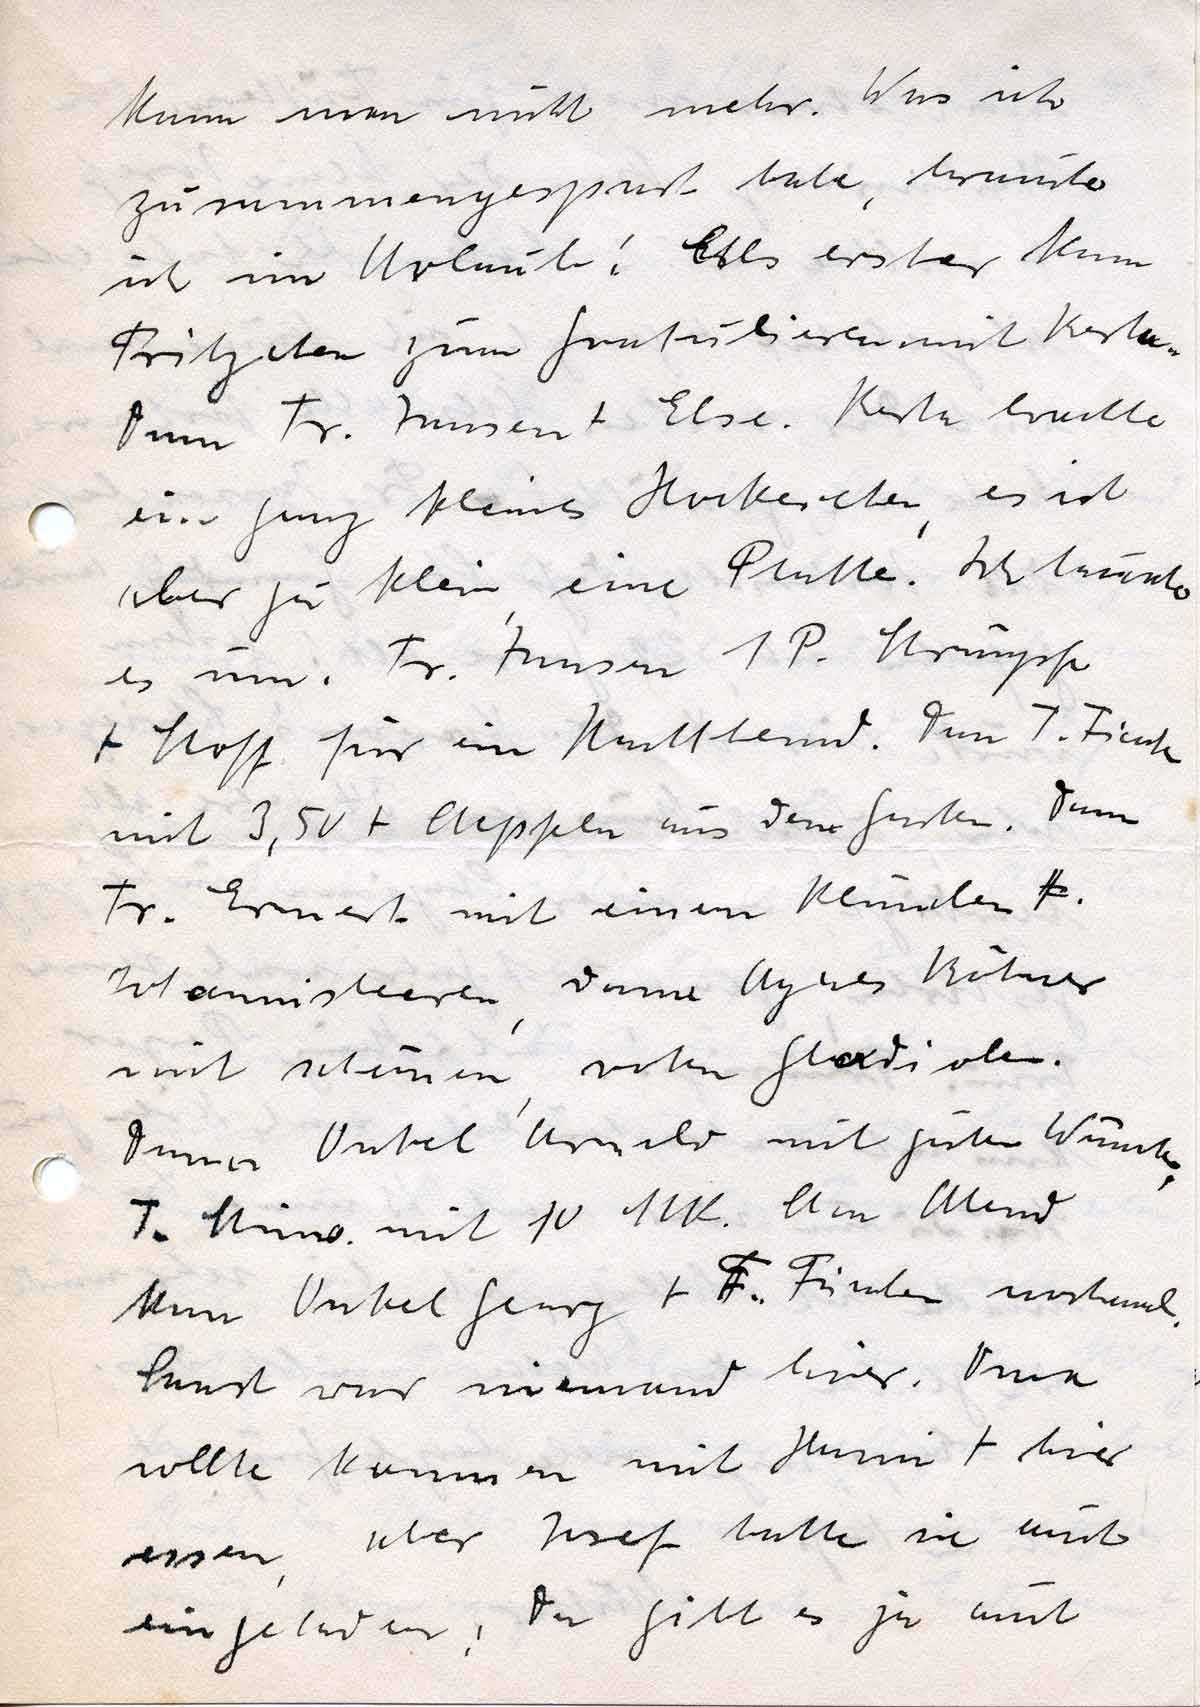 kann man nicht mehr. Was ich
zusammengespart habe, brauche
ich im Urlaub! Als erster kam
Fritzchen zum Gratulieren mit Herta.
Dann Fr. Jansen + Else. Herta brachte
ein ganz kleines Höckerchen, es ist
aber zu klein, eine Platte. Ich tausche
es um. Fr. Jansen 1 P. Strümpfe
+ Stoff für ein Nachthemd. Dann T.
mit 3,50 + Aepfeln aus dem Garten. Dann
Fr. mit einem
Johannisbeeren, dann Agnes
mit schönen, roten Gladiolen.
Dann Onkel Arnold mit guten Wünschen,
T. mit 10 Mk. Am Abend
kam Onkel Georg +
Sonst war niemand hier.
wollte kommen mit + hier
essen, aber Josef hatte sie auch
eingeladen, Da gibt es ja auch